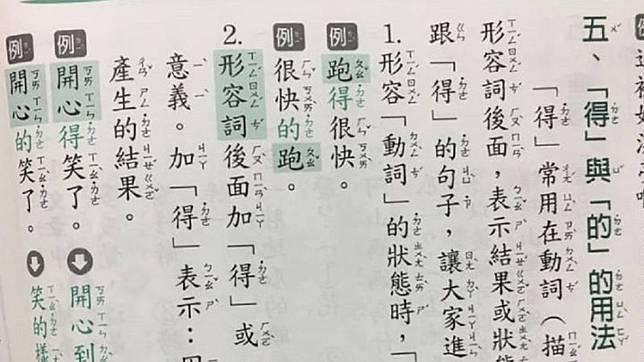 五、「得」與「的」的用法
「得」常用在動詞（描
形容詞後面，表示結果或狀
跟「得」的句子，讓大家進
1. 形容「動詞」的狀態時，「
例 跑得很快。
例 很快的跑。
2. 形容詞後面加「得」或
意義。加「得」表示：因
產生的結果。
例 開心得笑了。 開心到
例 開心的笑了。 笑的樣